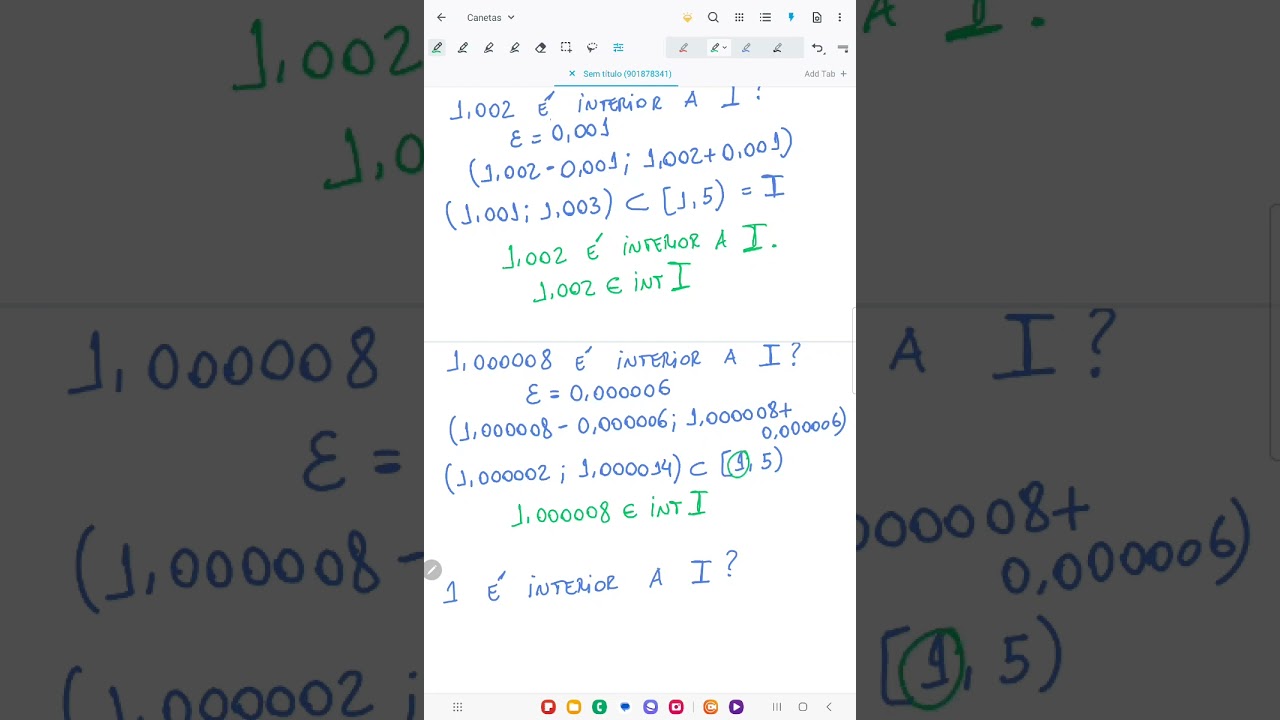 Canetas
Sem título (901878341)
Add Tab
1,002 É INTERIOR A I?
ε = 0,001
(1,002 - 0,001; 1,002 + 0,001)
(1,001; 1,003) ⊂ [1, 5) = I
1,002 É INTERIOR A I.
1,002 ∈ INT I
1,000008 É INTERIOR A I?
ε = 0,000006
(1,000008 - 0,000006; 1,000008+
0,000006)
(1,000002 ; 1,000014) ⊂ [1, 5)
1,000008 ∈ INT I
1 É INTERIOR A I?
1,002
A I.
1,0
1,000008
A I?
ε =
(1,000008 -
000008+
0,000006)
(1,000002 ;
[1, 5)